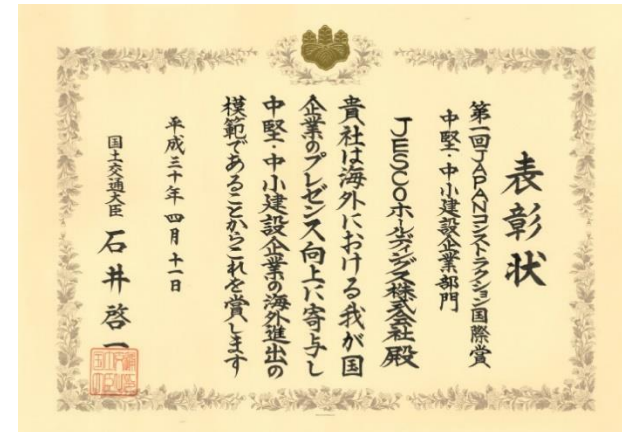 表彰状
第一回JAPANコンストラクション国際賞
中堅・中小建設企業部門
JESCOホールディングス株式会社殿
貴社は海外における我が国
企業のプレゼンス向上に寄与し
中堅・中小建設企業の海外進出の
模範であることからこれを賞します
平成三十年四月十一日
国土交通大臣 石井啓一